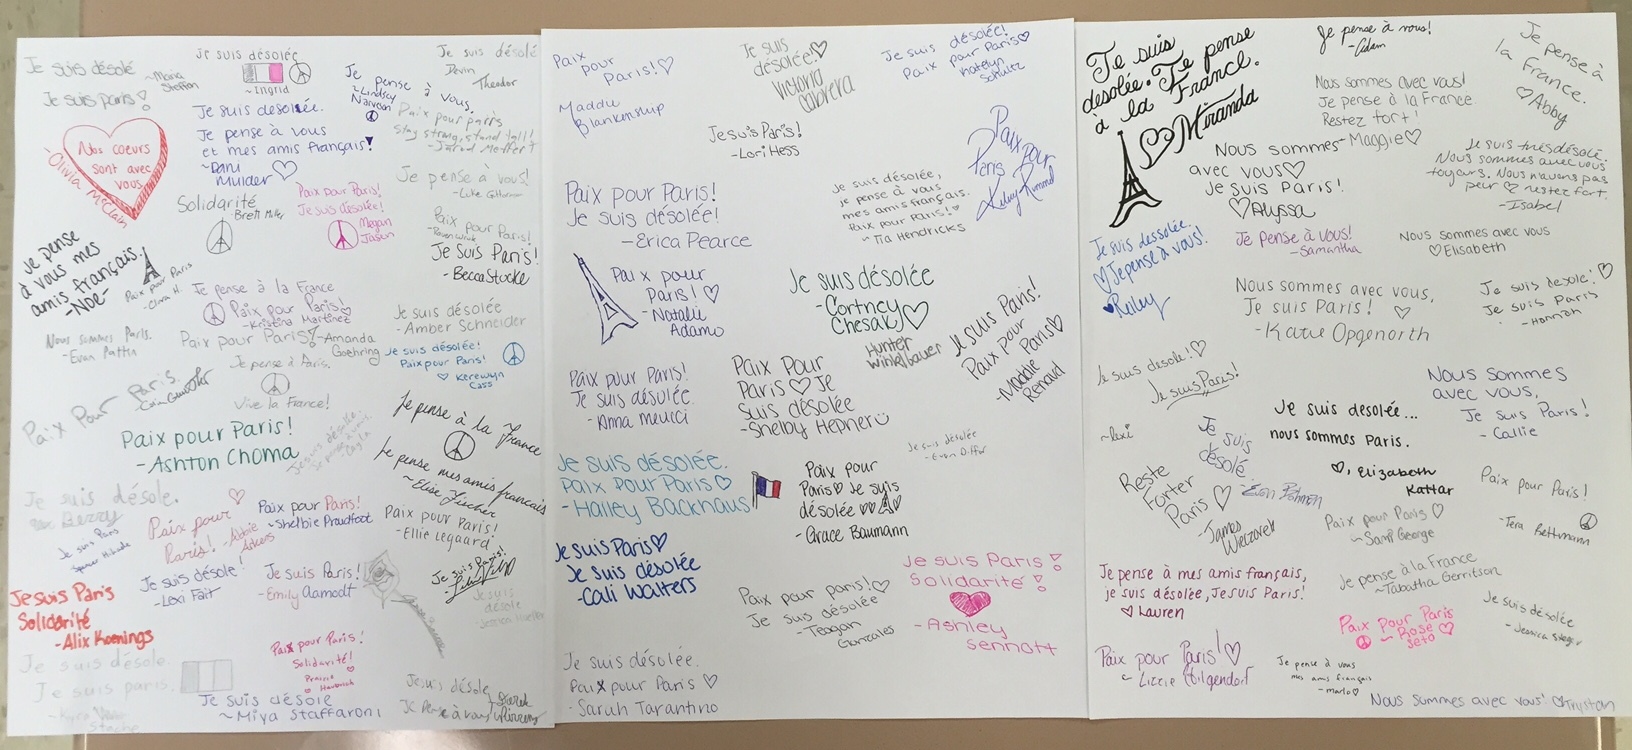 Je suis désolé
~Maria
Je suis paris!
Je suis désolée
~Ingrid
Je
pense
à
vous,
~Lindsay
Je suis désolé
Devin
Theodor
Nos coeurs
sont avec
vous
Olivia McClain
Je suis desolée.
Je pense à vous
et mes amis français!
~Dani
Mulder
Paix pour paris
Stay strong, stand tall!
Je pense à vous!
Solidarité
-Brett Miller
Paix pour Paris!
Je suis désolée!
Megan
Jason
Paix pour Paris!
Je Suis Paris!
-Becca Stocke
Je pense
à vous mes
amis français.
-Noe-
Paix pour Paris
Je pense à la France
Paix pour Paris!
-Kristina Martinez
Je suis désolée
-Amber Schneider
Nous sommes Paris.
-Evan
Paix pour Paris!
-Amanda
Goehring
Je suis désolée!
Paix pour Paris!
Kerewyn
Cass
Je pense à Paris.
Vive la France!
Paix Pour Paris
Paix pour Paris!
-Ashton Choma
Je pense à la France
Je pense mes amis francais
~Elise Fischer
Je suis désole.
Berry
Paix pour
Paris!
-Abbie
Paix pour Paris!
~Shelbie Proudfoot
Paix pour Paris!
-Ellie Legaard
Je suis Paris
Je suis Paris
Solidarité
-Alix Koenings
Je suis désole!
-Lexi Fait
Je suis Paris!
-Emily Aamodt
Je suis Paris!
Je suis
désole
Je suis désole.
Je suis paris.
Paix pour Paris!
Solidarité!
Je suis désole
~Miya Staffaroni
Je suis désole
Je pense à vous!
Paix
pour
Paris!
Maddy
Blankenship
Je suis
désolée!
Victoria
Cabrera
Je suis désolée!
Paix pour Paris
Katelyn
Schultz
Je suis Paris!
-Lori Hess
Paix pour
Paris
Paix pour Paris!
Je suis désolée!
-Erica Pearce
Je suis désolée,
je pense à vous
mes amis français.
Paix pour Paris!
~Tia Hendricks
Paix pour
Paris!
-Natalie
Adamo
Je suis désolée
-Cortney
Chesak
Hunter
Winkelbauer
Je suis Paris!
Paix pour
Paris
-Maddie
Renaud
Paix pour Paris!
Je suis désolée.
-Anna Meucci
Paix Pour
Paris Je
suis désolée
-Shelby Hepner
Je suis désolée
Je suis désolée.
Paix pour Paris
-Hailey Backhaus
Paix pour
Paris Je suis
désolée
-Grace Baumann
Je suis Paris
Je suis désolée
-Cali Walters
Je suis Paris!
Solidarité!
-Ashley
Sennott
Paix pour paris!
Je suis désolée
-Teagan
Gonzales
Je suis désolée.
Paix pour Paris
-Sarah Tarantino
Je suis
désolée. Je pense
à la France.
Miranda
Je pense à vous!
-Adam
Je pense à
la France.
Abby
Nous sommes avec vous!
Je pense à la France.
Restez fort!
-Maggie
Nous sommes
avec vous
Je suis Paris!
Alyssa
Je suis très désolé.
Nous sommes avec vous
toujours. Nous n'avons pas
peur restez fort.
-Isabel
Je suis dessolée.
Je pense à vous!
Riley
Je Pense à Vous!
-Samantha
Nous sommes avec vous
Elisabeth
Nous sommes avec vous,
Je suis Paris!
-Katie Opgenorth
Je suis desole!
Je suis Paris
-Hannah
Je suis desole!
Je suis Paris!
~lexi
Nous sommes
avec vous,
Je suis Paris!
-Callie
Je suis desolée...
nous sommes Paris.
, Elizabeth
Kattar
Je
suis
désolé
Reste
Forter
Paris
-James
Welzorek
Paix pour Paris!
-Tera Rettmann
Paix pour Paris
~Sam George
Je pense à la France
~Tabatha Gerritson
Je pense à mes amis français,
je suis désolée, Je suis Paris!
Lauren
Je suis désolée
Paix pour Paris
~Rose
Seto
Paix pour Paris!
~Lizzie Hilgendorf
Je pense à vous
mes amis français
-marlo
Nous sommes avec vous!
Trystan